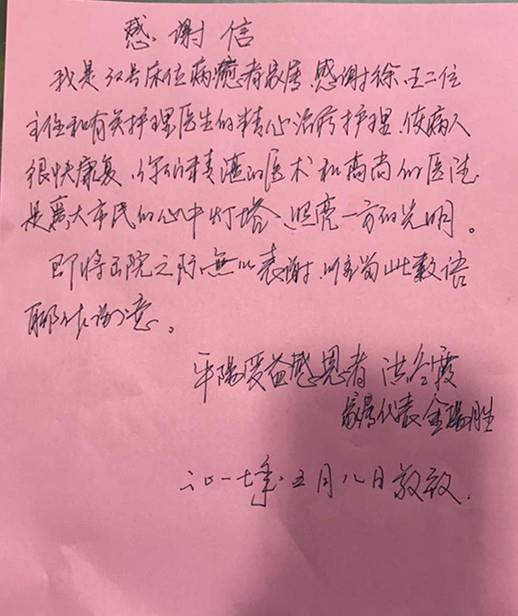 感谢信
我是32号床位病癒者家属,感谢徐、王二位
主任和有关护理医生的精心治疗护理,使病人
很快康复,你们精湛的医术和高尚的医德
是广大市民的心中灯塔、照亮一方的光明。
即将出院之际,無以表谢,临别留此数语
聊表谢意。
平陽受益感恩者 洪冬霞
家属代表 金陽胜
二〇一七年五月八日敬致.